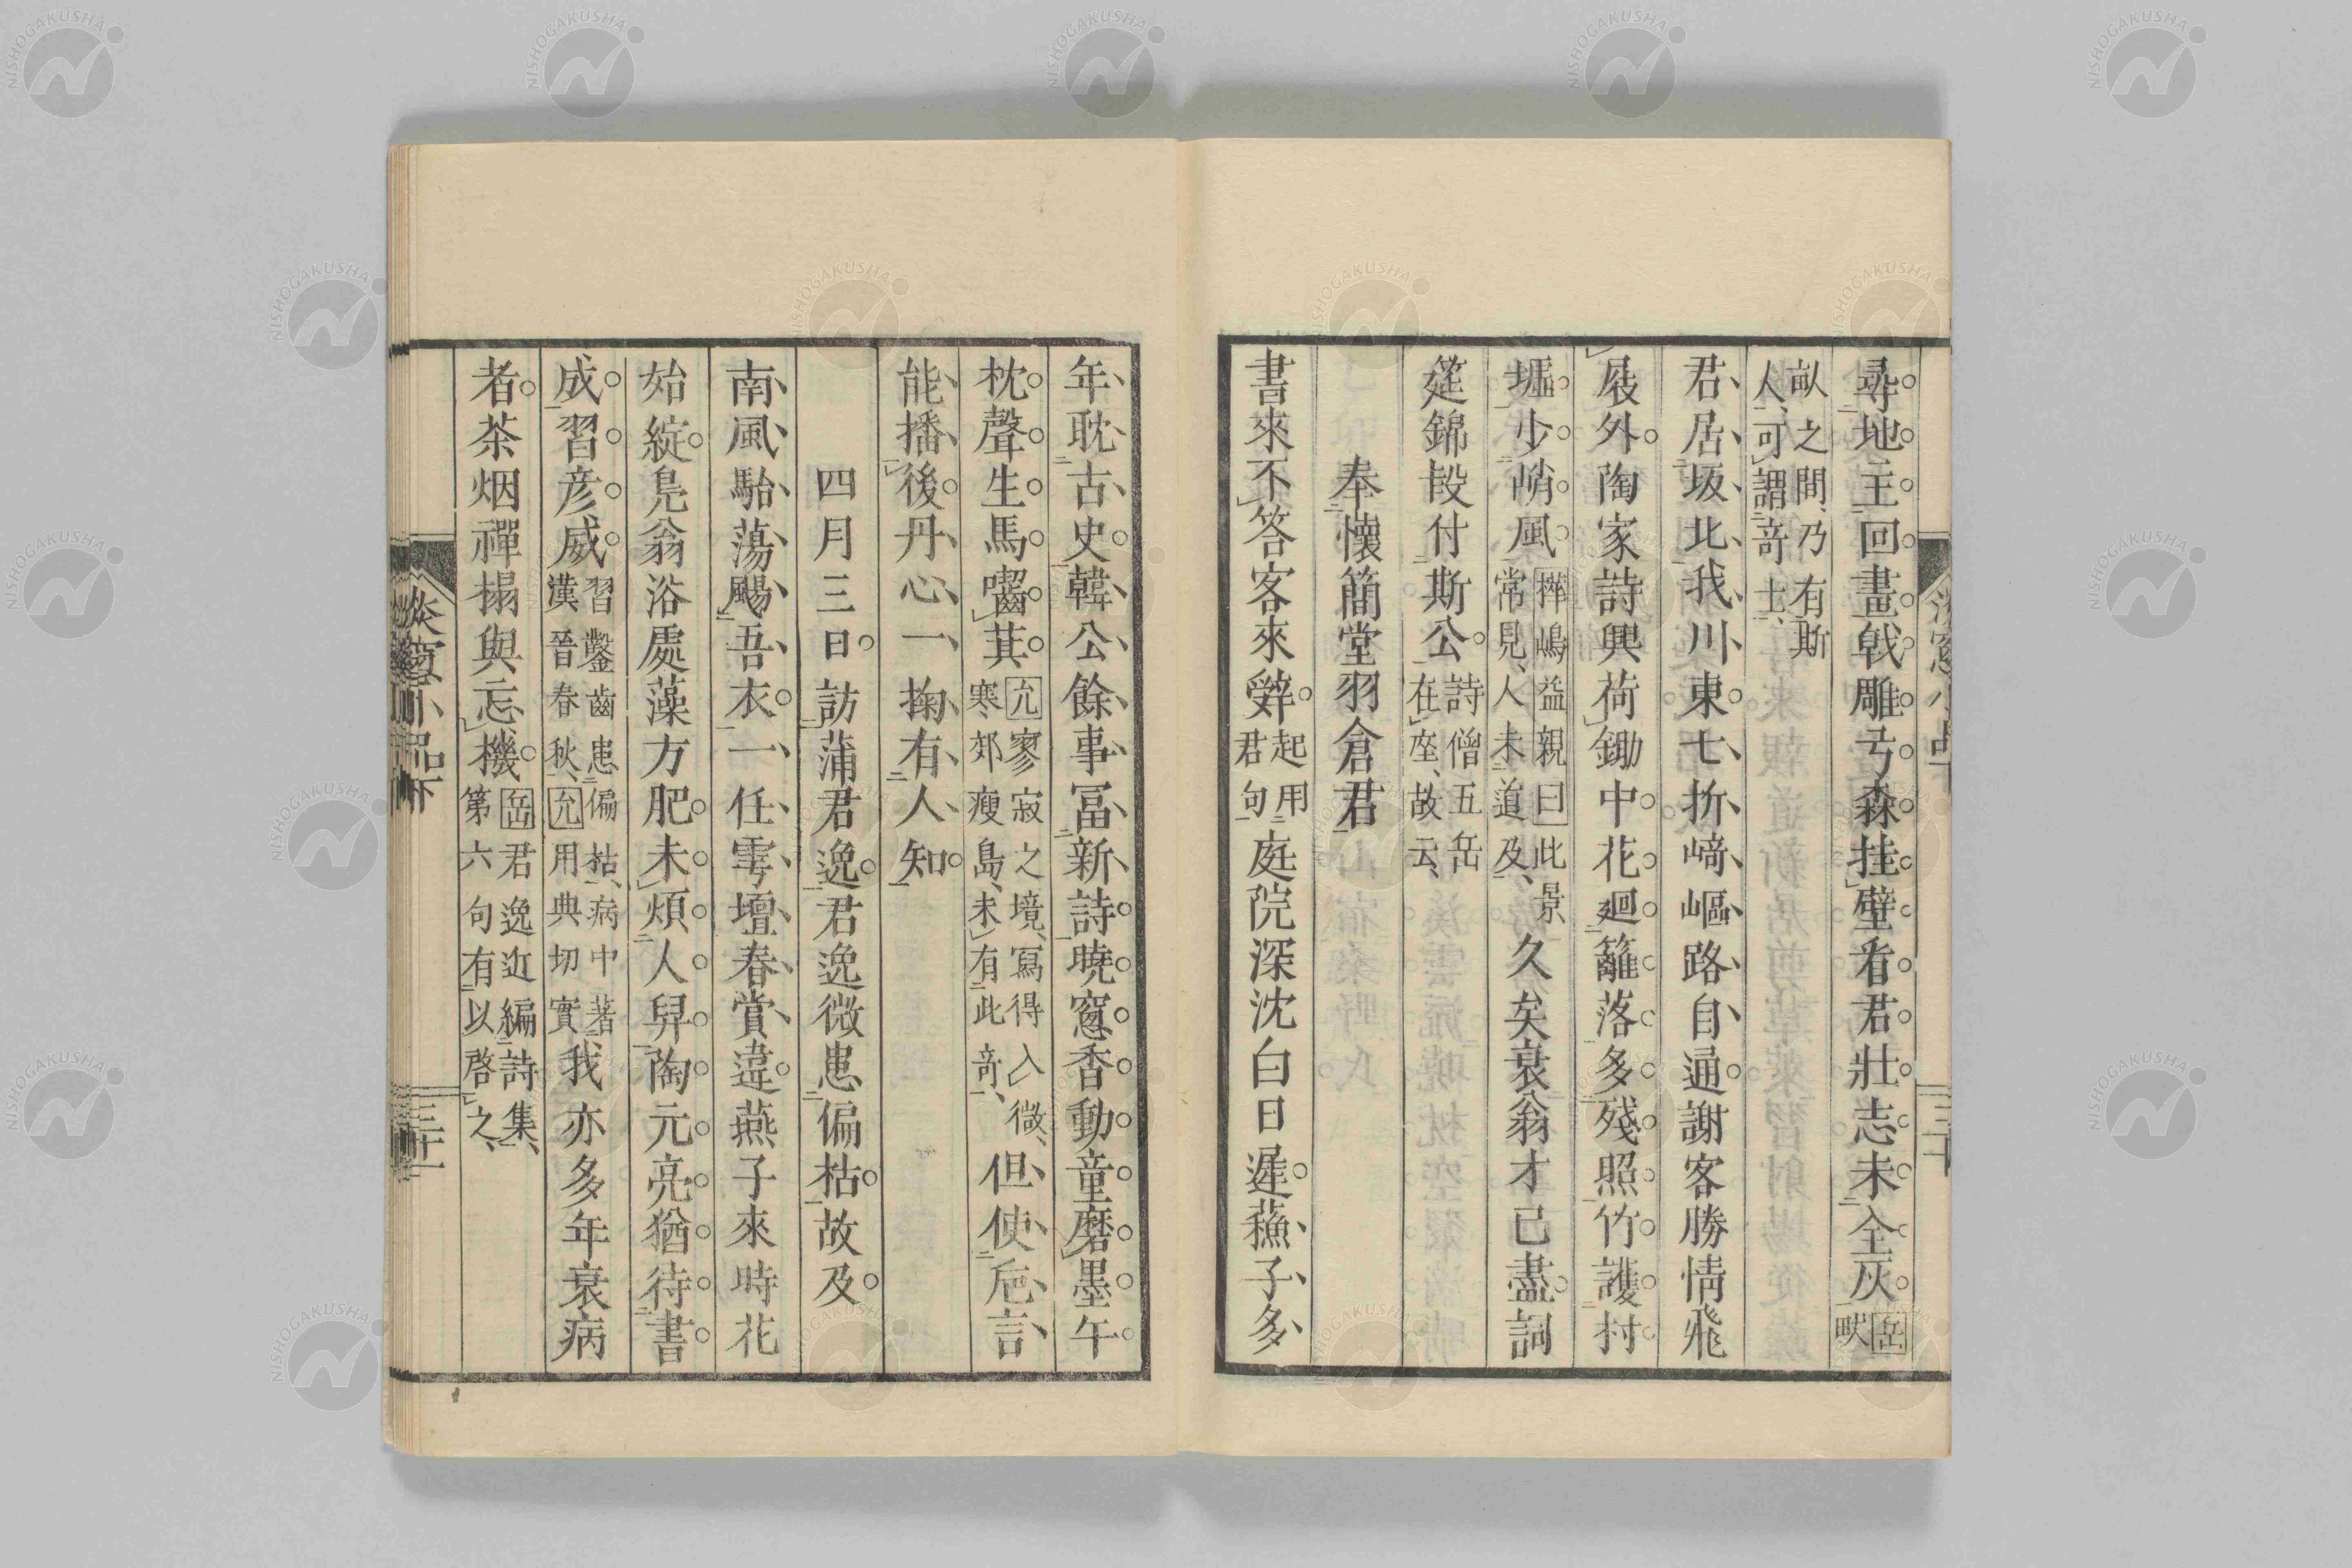 尋地主回畫戟雕弓森挂壁看君壯志未全灰岳畎
畝之間、乃有斯
人、可謂竒士、
君居坂北我川東七折﨑嶇路自通謝客勝情飛
屐外陶家詩興荷鋤中花廻籬落多殘照竹護村
墟少峭風樺嶋益親曰此景
常見、人未道及、久矣衰翁才已盡詞
筵錦段付斯公詩僧五岳
在座、故云、
奉懷簡堂羽倉君
書來不答客來辤起用
君句庭院深沈白日遲蘓子多
年耽古史韓公餘事冨新詩曉窻香動童磨墨午
枕聲生馬囓萁允寥寂之境、冩得入微、
寒郊瘦島、未有此竒、但使巵言
能播後丹心一掬有人知
四月三日訪蒲君逸君逸微患偏枯故及
南風駘蕩颺吾衣一任雩壇春賞違燕子來時花
始綻鳧翁浴處藻方肥未煩人舁陶元亮猶待書
成習彦威習鑿齒患偏枯、病中著
漢晉春秋、允用典切實我亦多年衰病
者茶烟禪榻與忘機岳君逸近編詩集、
第六句有以啓之、
淡窻小品下
三十
淡窻小品下
三十一
NISHOGAKUSHA